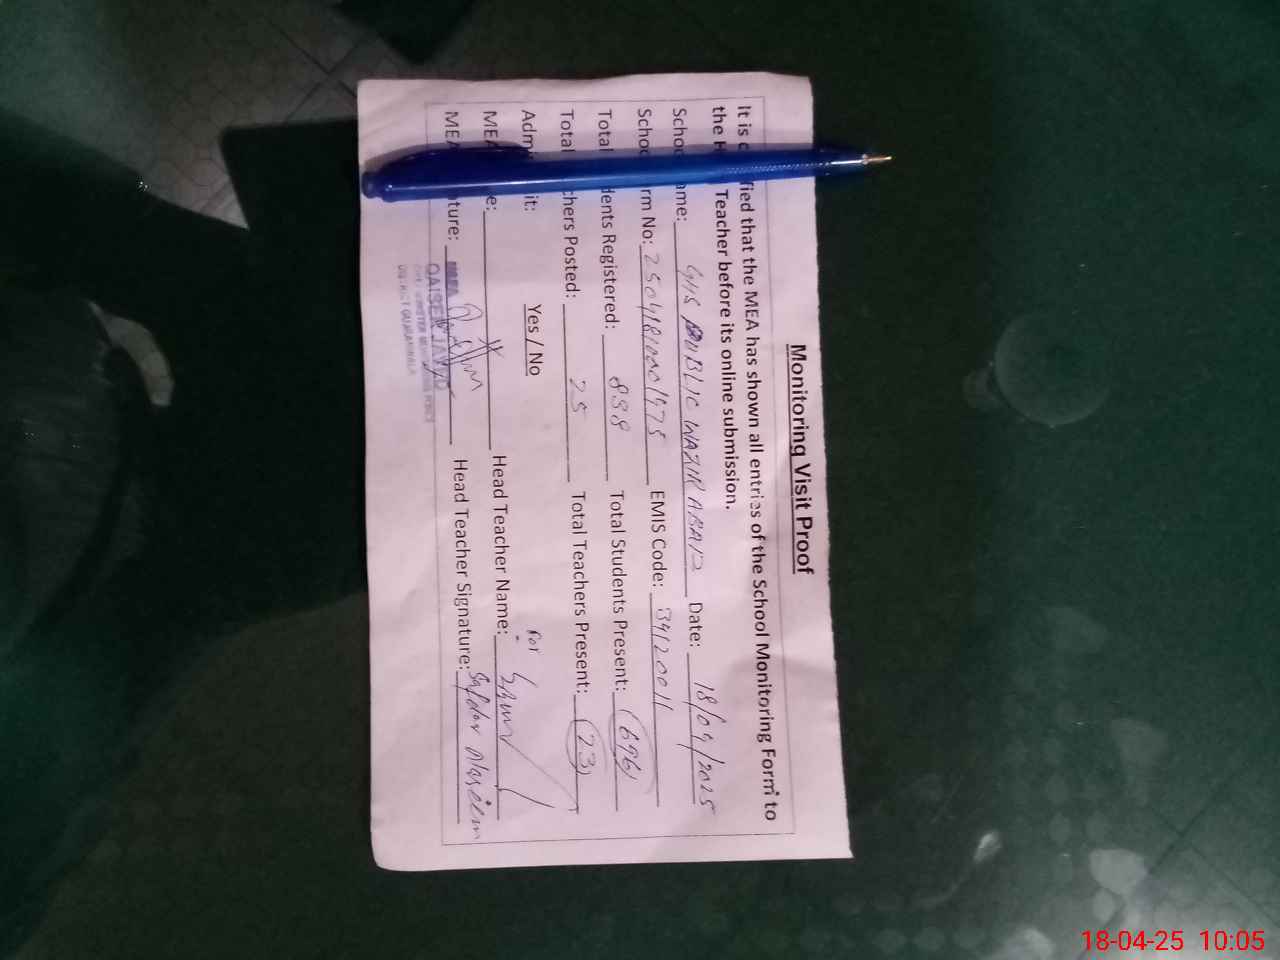 Monitoring Visit Proof
It is c fied that the MEA has shown all entries of the School Monitoring Form to
the H Teacher before its online submission.
Schoo ame: GHS PUBLIC WAZIRABAD Date: 18/04/2025
Schoo rm No: EMIS Code: 34120011
Total dents Registered: 898 Total Students Present: 696
Total chers Posted: 25 Total Teachers Present: 23
Admi it: Yes / No
MEA e: Head Teacher Name: For
MEA ture: Head Teacher Signature: Safdar Naseem
QAISER JAVED
DISTRICT GUJRANWALA
18-04-25 10:05